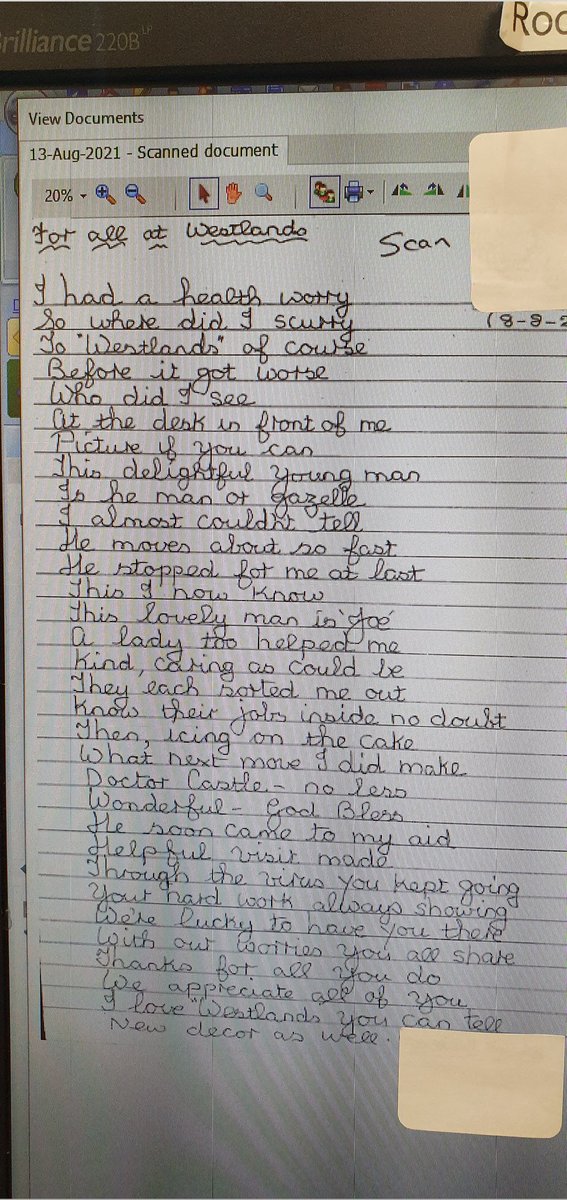 Brilliance 220B LP
Roc
View Documents
13-Aug-2021 - Scanned document
20%
For all at Westlands
Scan
I had a health worry
So where did I scurry
(8-8-2
To "Westlands" of course
Before it got worse
Who did I see
At the desk in front of me
Picture if you can
This delightful young man
Is he man or gazelle
I almost couldn't tell
He moves about so fast
He stopped for me at last
This I now know
This lovely man is 'Joe'
A lady too helped me
Kind, caring as could be
They each sorted me out
Know their jobs inside no doubt
Then, icing on the cake
What next move I did make
Doctor Castle - no less
Wonderful - God Bless
He soon came to my aid
Helpful visit made
Through the virus you kept going
Your hard work always showing
We're lucky to have you there
With our worries you all share
Thanks for all you do
We appreciate all of you
I love "Westlands you can tell
New decor as well.